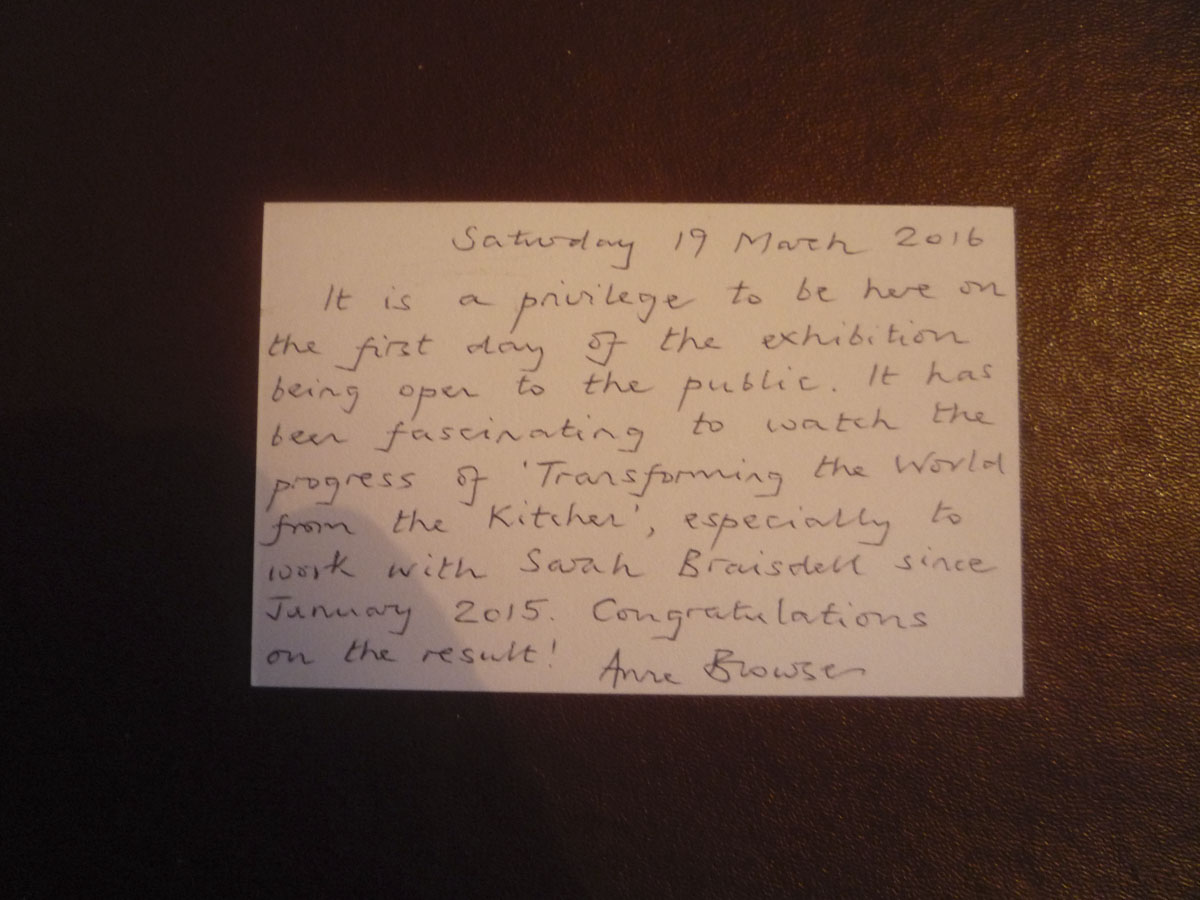 Saturday 19 March 2016
It is a privilege to be here on
the first day of the exhibition
being open to the public. It has
been fascinating to watch the
progress of 'Transforming the World
from the Kitchen', especially to
work with Sarah Braisdell since
January 2015. Congratulations
on the result! Anne Browser